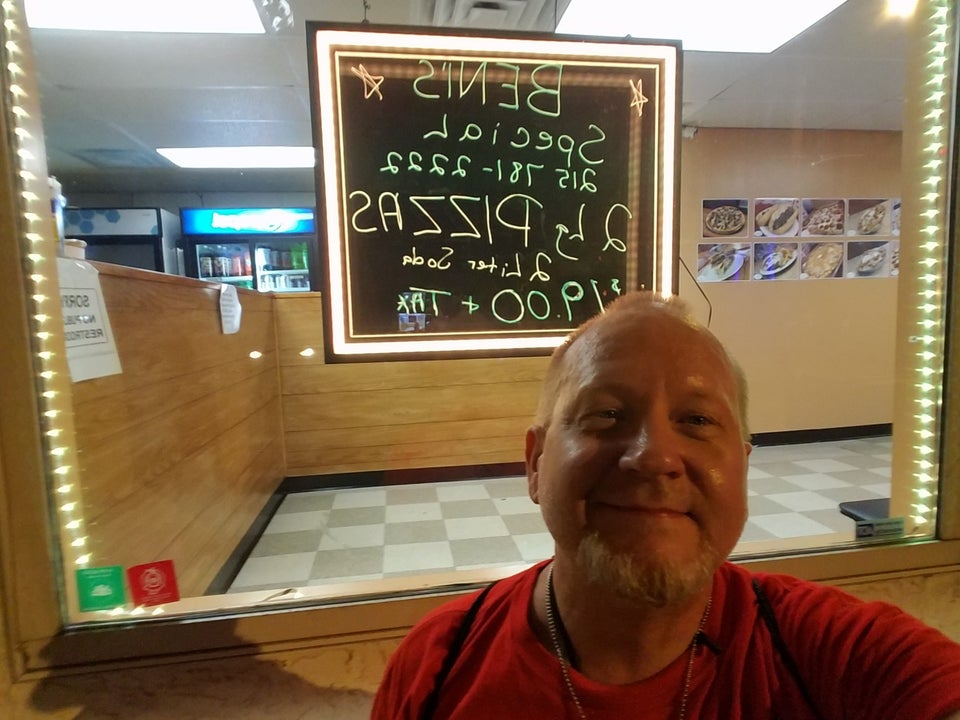 BEN'S
Special
215 781-2222
2 lg PIZZAS
2 Liter Soda
$19.00 + TAX
SORRY
NO PUBLIC
RESTROOM